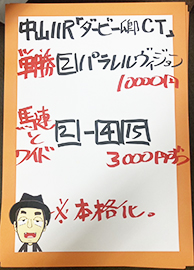 中山11R「ダービー卿CT」
単勝 2 パラレルヴィジョン
10000円
馬連と
ワイド 2-4 15
3000円ずつ
※本格化。